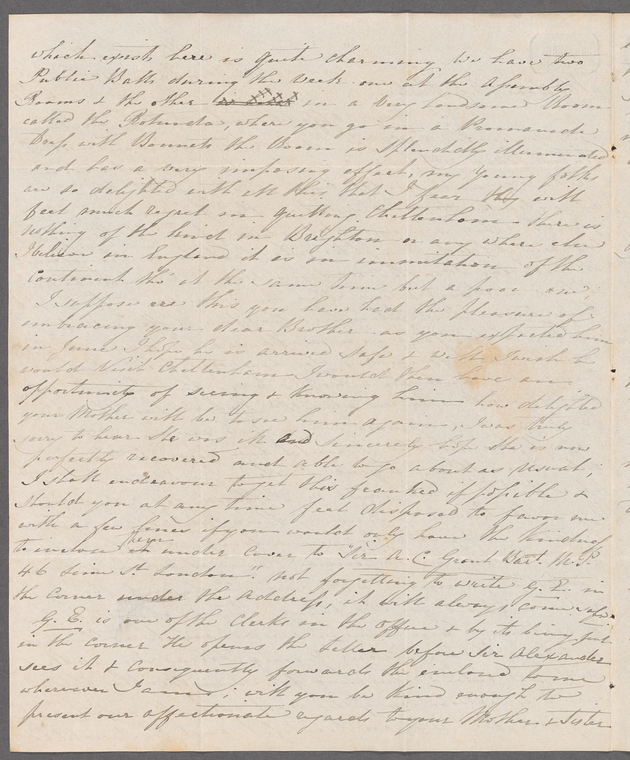 which exists here is quite charming we have two
Public Balls during the Week one at the Assembly
Rooms & the other in a very handsome Room
called the Rotunda, where you go in a Promenade
Dress with Bonnets the Room is splendidly illuminated
and has a very imposing effect, my young folks
are so delighted with all this that I fear they will
feel much regret in quitting Cheltenham there is
nothing of the kind in Brighton or any where else
I believe in England it is in immitation of the
Continent tho' at the same time but a poor one;
I suppose ere this you have had the pleasure of
embracing your dear Brother as you expected him
in June I hope he is arrived safe & well I wish he
would visit Cheltenham I would then have an
opportunity of seeing & knowing him how delighted
your Mother will be to see him again, I was truly
sorry to hear she was ill and sincerely hope she is now
perfectly recovered and able to go about as usual;
I shall endeavour to get this franked if possible &
should you at any time feel disposed to favor me
with a few lines if you would only have the kindness
to inclose them under cover to "Sir A. C. Grant Bart. M.P.
46 St. London" not forgetting to write G. E. in
the corner under the Address, it will always come safe
G. E. is one of the Clerks in the office & by its being put
in the corner He opens the letter before Sir Alexander
sees it & consequently forwards the enclosed to me
wherever I am; will you be kind enough to
present our affectionate regards to your Mother & Sister